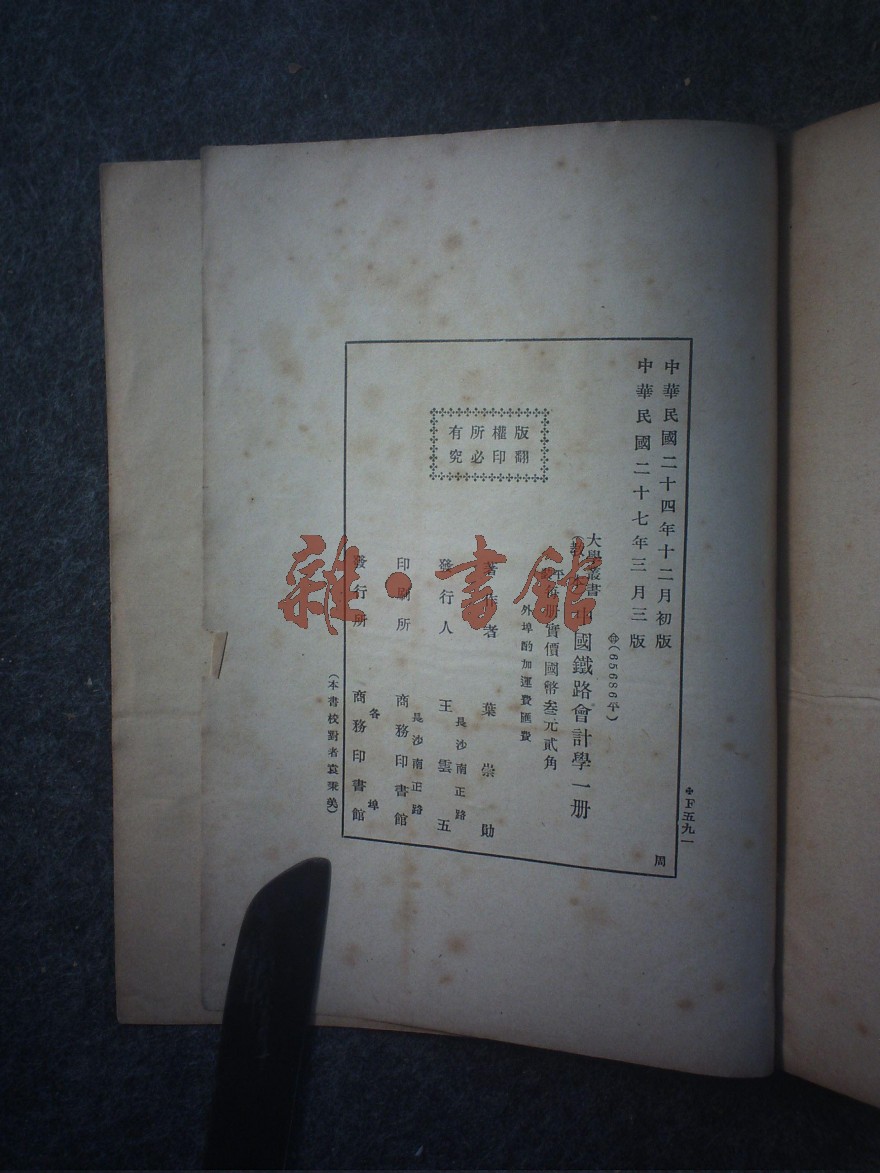 中華民國二十四年十二月初版
中華民國二十七年三月三版
(65686平)
大學叢書
(教本)
中國鐵路會計學一册
平裝册實價國幣叁元貳角
外埠酌加運費匯費
版權所有
翻印必究
著作者 葉崇勛
發行人 王雲五
長沙南正路
印刷所 商務印書館
長沙南正路
發行所 商務印書館
各埠
(本書校對者袁秉美)
F五九一
周
雜·書館